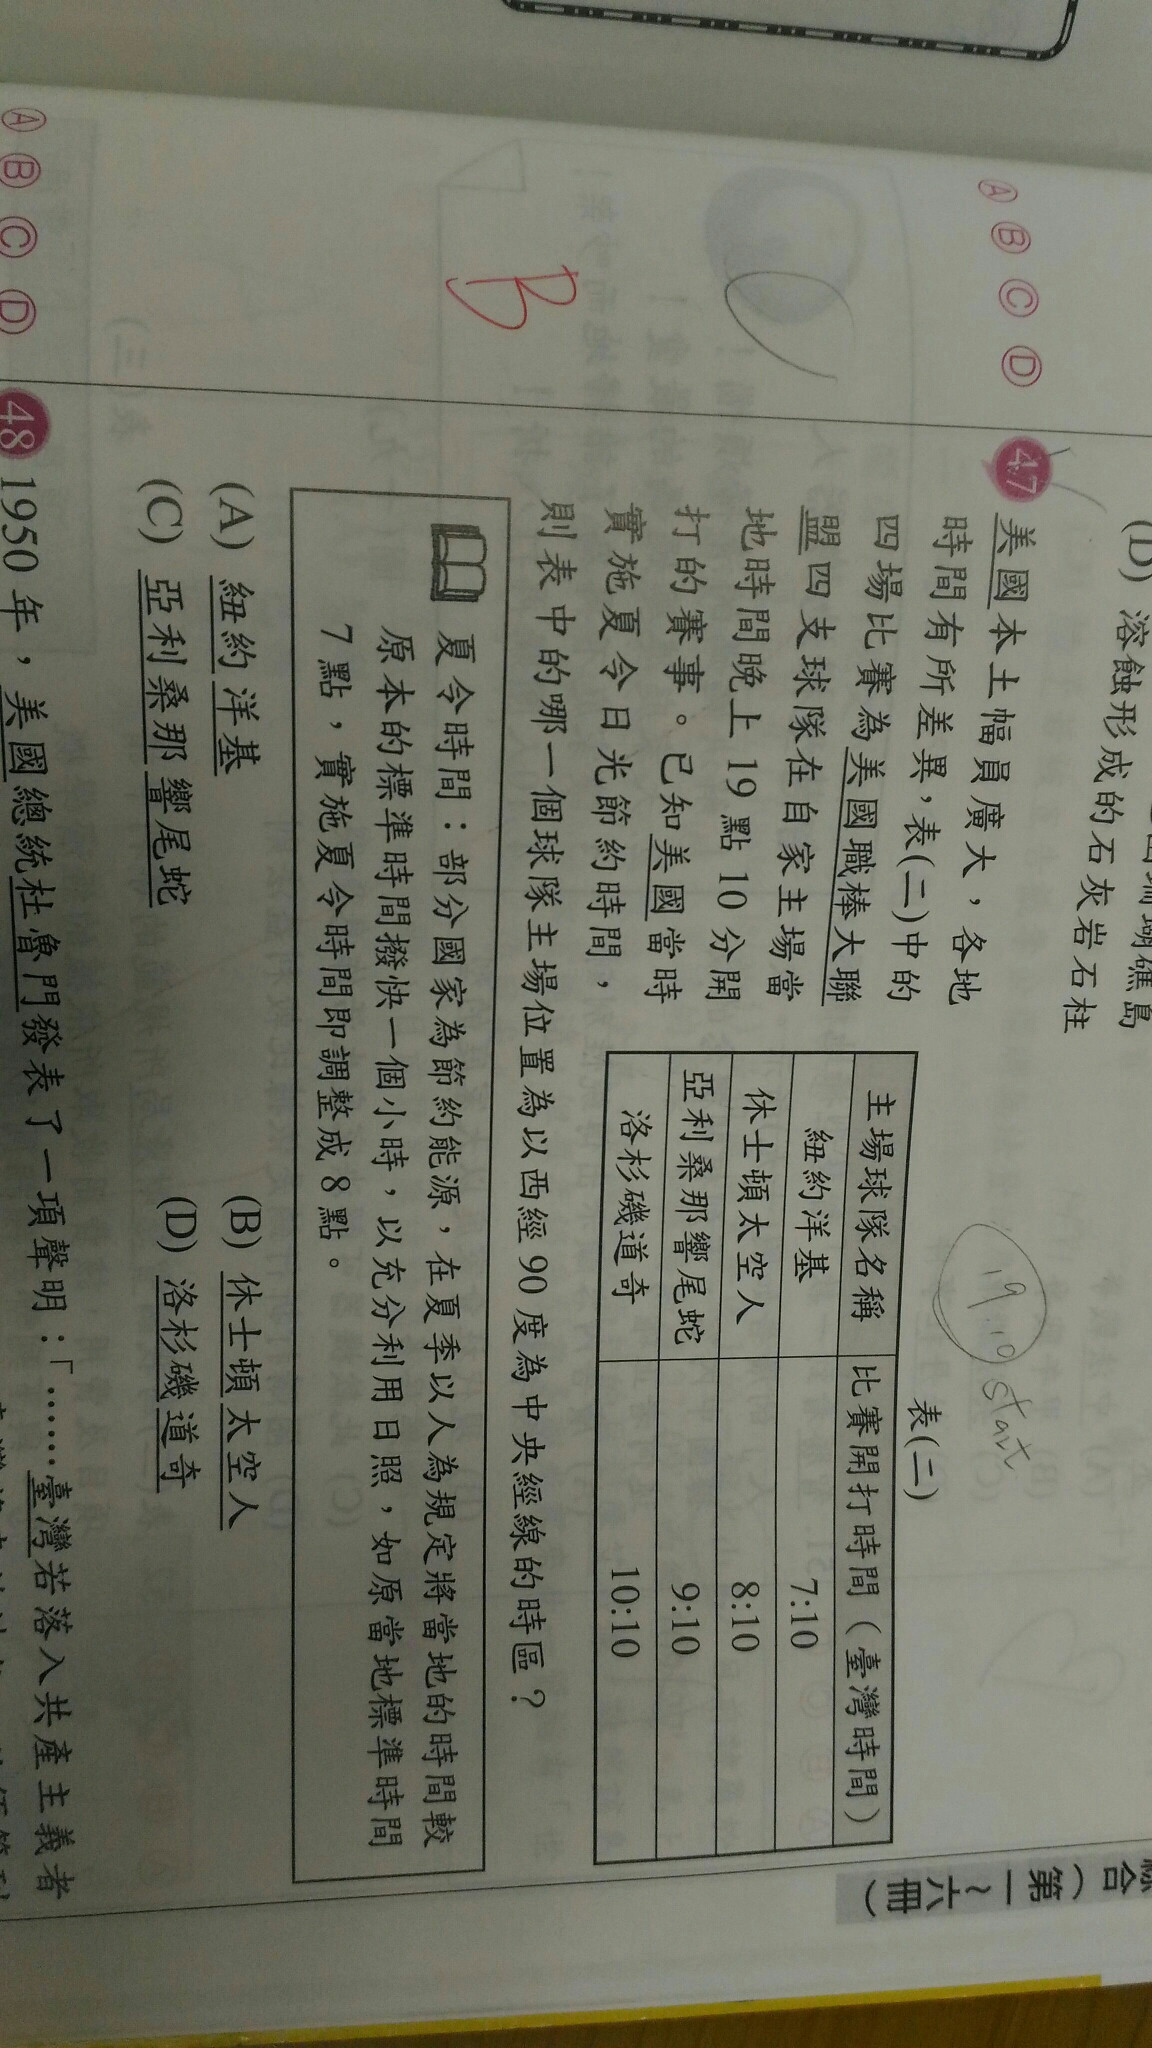 (D) 溶蝕形成的石灰岩石柱
Ⓐ Ⓑ Ⓒ Ⓓ
47 美國本土幅員廣大，各地
時間有所差異，表(二)中的
四場比賽為美國職棒大聯
盟四支球隊在自家主場當
地時間晚上 19 點 10 分開
打的賽事。已知美國當時
實施夏令日光節約時間，
則表中的哪一個球隊主場位置為以西經 90 度為中央經線的時區？
19:10 start
表(二)
主場球隊名稱 比賽開打時間（臺灣時間）
紐約洋基 7:10
休士頓太空人 8:10
亞利桑那響尾蛇 9:10
洛杉磯道奇 10:10
B
夏令時間：部分國家為節約能源，在夏季以人為規定將當地的時間較
原本的標準時間撥快一個小時，以充分利用日照，如原當地標準時間
7 點，實施夏令時間即調整成 8 點。
(A) 紐約洋基 (B) 休士頓太空人
(C) 亞利桑那響尾蛇 (D) 洛杉磯道奇
Ⓐ Ⓑ Ⓒ Ⓓ
48 1950 年，美國總統杜魯門發表了一項聲明：「……臺灣若落入共產主義者
合（第一～六冊）